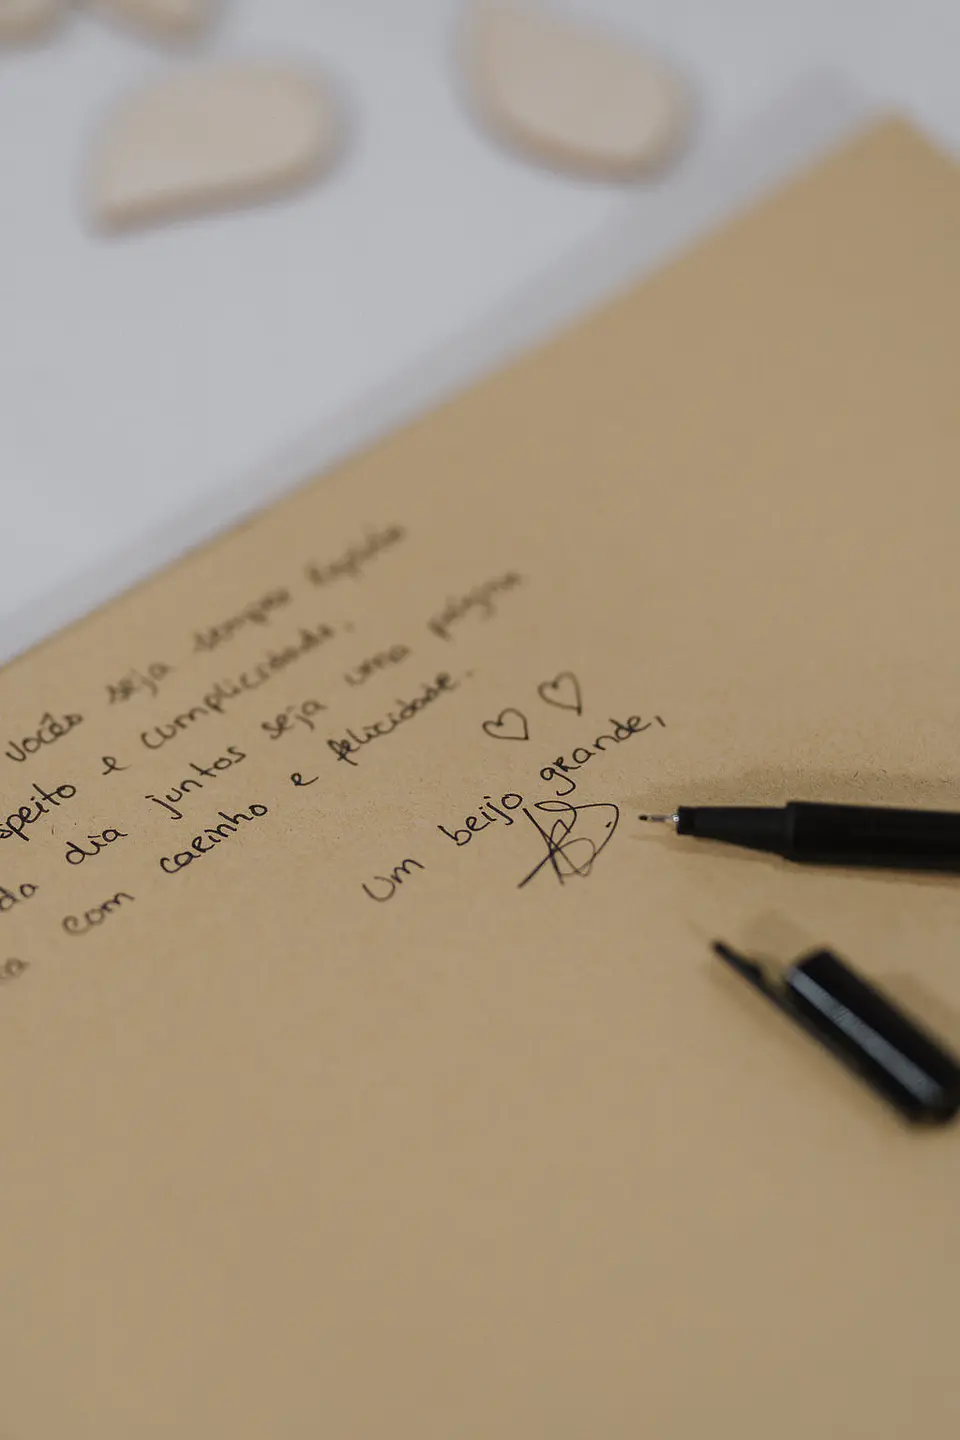 vocês seja sempre repleta
speito e cumplicidade.
da dia juntos seja uma página
a com carinho e felicidade.
Um beijo grande,